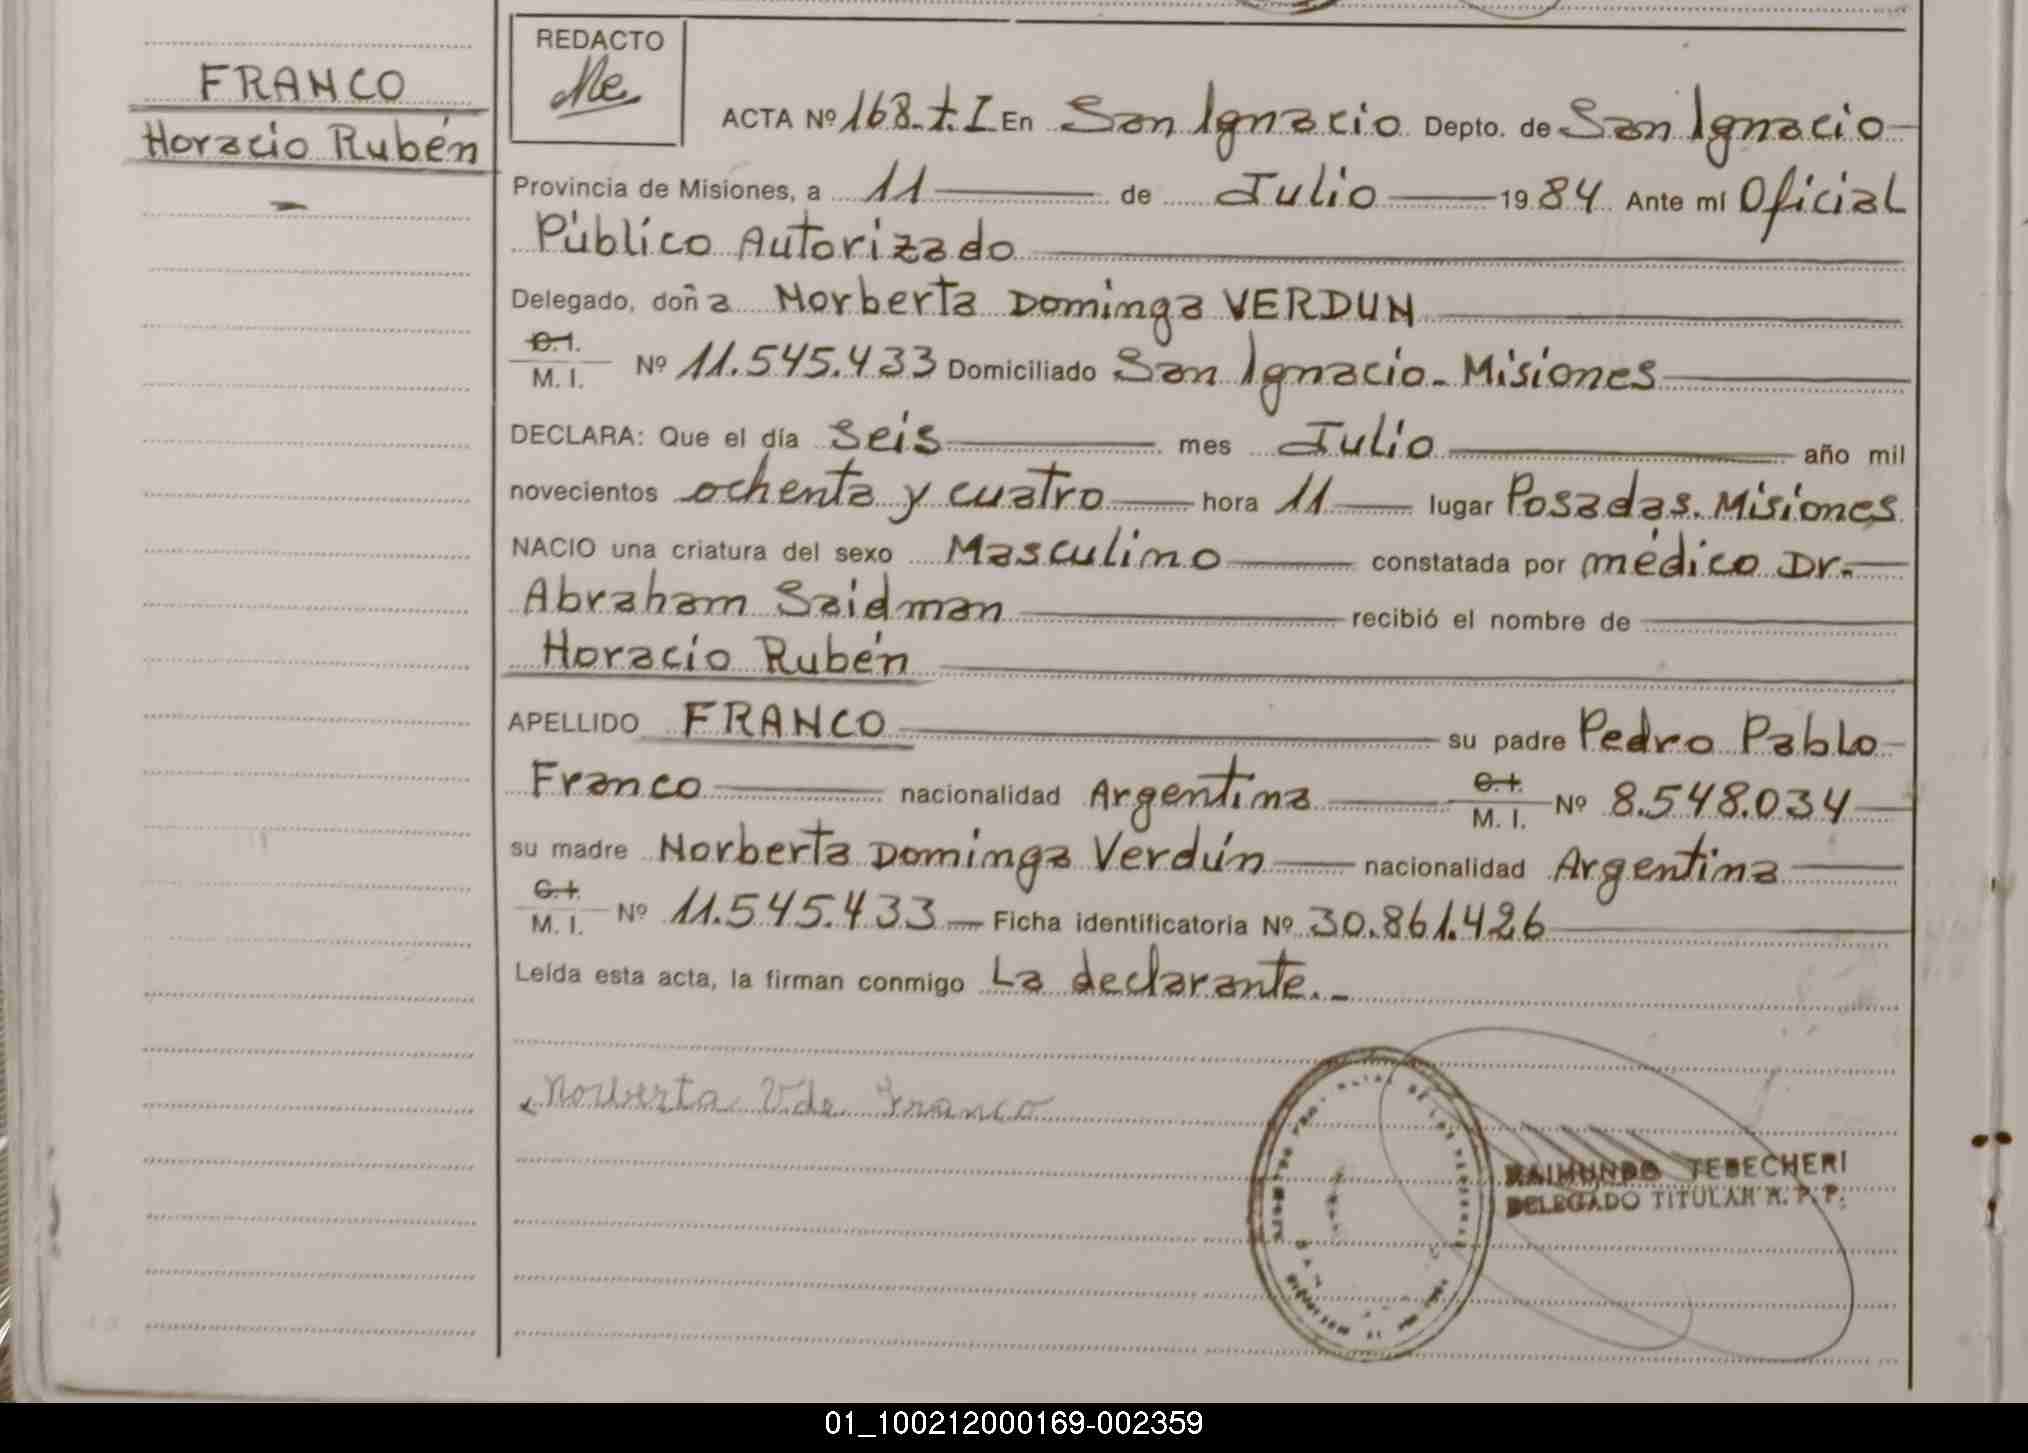 FRANCO
Horacio Rubén
REDACTO
ACTA Nº 168.t.I En San Ignacio Depto. de San Ignacio
Provincia de Misiones, a 11 de Julio 19 84 Ante mí Oficial
Público Autorizado
Delegado, doña Norberta Dominga VERDUN
C.I.
M. I. Nº 11.545.433 Domiciliado San Ignacio - Misiones
DECLARA: Que el día seis mes Julio año mil
novecientos ochenta y cuatro hora 11 lugar Posadas. Misiones
NACIO una criatura del sexo Masculino constatada por médico Dr.
Abraham Saidman recibió el nombre de
Horacio Rubén
APELLIDO FRANCO su padre Pedro Pablo
Franco nacionalidad Argentina C.I. M. I. Nº 8.548.034
su madre Norberta Dominga Verdún nacionalidad Argentina
C.I.
M. I. Nº 11.545.433 Ficha identificatoria Nº 30.861.426
Leída esta acta, la firman conmigo La declarante.
Norberta V de Franco
RAIMUNDO TEBECHERI
DELEGADO TITULAR R. P. P.
01_100212000169-002359